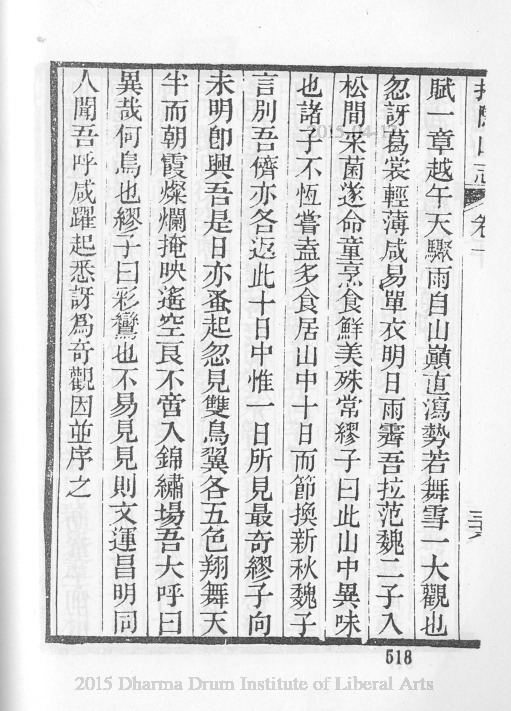 賦一章越午天驟雨自山巔直瀉勢若舞雪一大觀也
忽訝葛裳輕薄咸易單衣明日雨霽吾拉范魏二子入
松間采菌遂命童烹食鮮美殊常繆子曰此山中異味
也諸子不恆嘗盍多食居山中十日而節換新秋魏子
言別吾儕亦各返此十日中惟一日所見最奇繆子向
未明卽興吾是日亦蚤起忽見雙鳥翼各五色翔舞天
半而朝霞燦爛掩映遙空艮不啻入錦繡場吾大呼曰
異哉何鳥也繆子曰彩鸞也不易見見則文運昌明同
人聞吾呼咸躍起悉訝爲奇觀因並序之
518
2015 Dharma Drum Institute of Liberal Arts